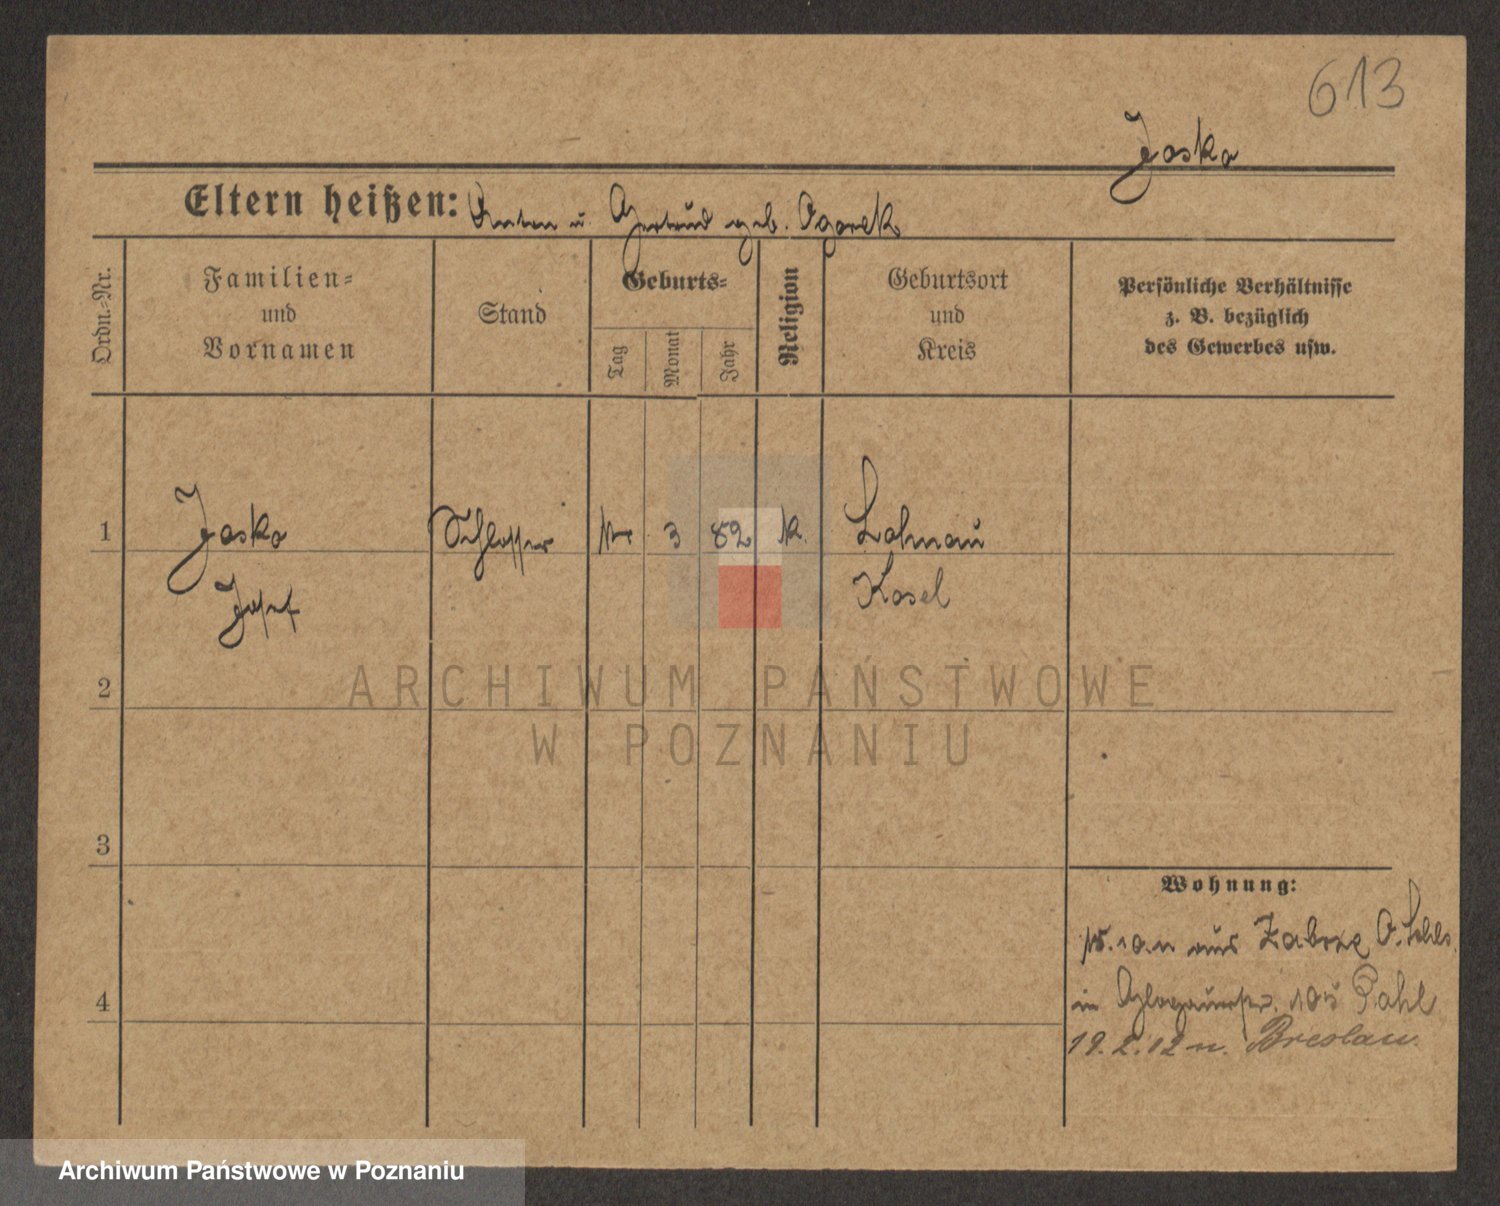 613
Jaska
Eltern heißen: Anton u. Gertrud geb. Ogorek
Ordn.-Nr.
Familien-
und
Vornamen
Stand
Geburts-
Tag
Monat
Jahr
Religion
Geburtsort
und
Kreis
Persönliche Verhältnisse
z. B. bezüglich
des Gewerbes usw.
1 Jaska Schlosser 3 82 k. Lohnau
Josef Kosel
ARCHIWUM PAŃSTWOWE
W POZNANIU
2
3
Wohnung:
15.10.11 aus Zabrze O. Schls.
4
in Glogauerstr. 105 Pohl
19.2.12 n. Breslau.
Archiwum Państwowe w Poznaniu